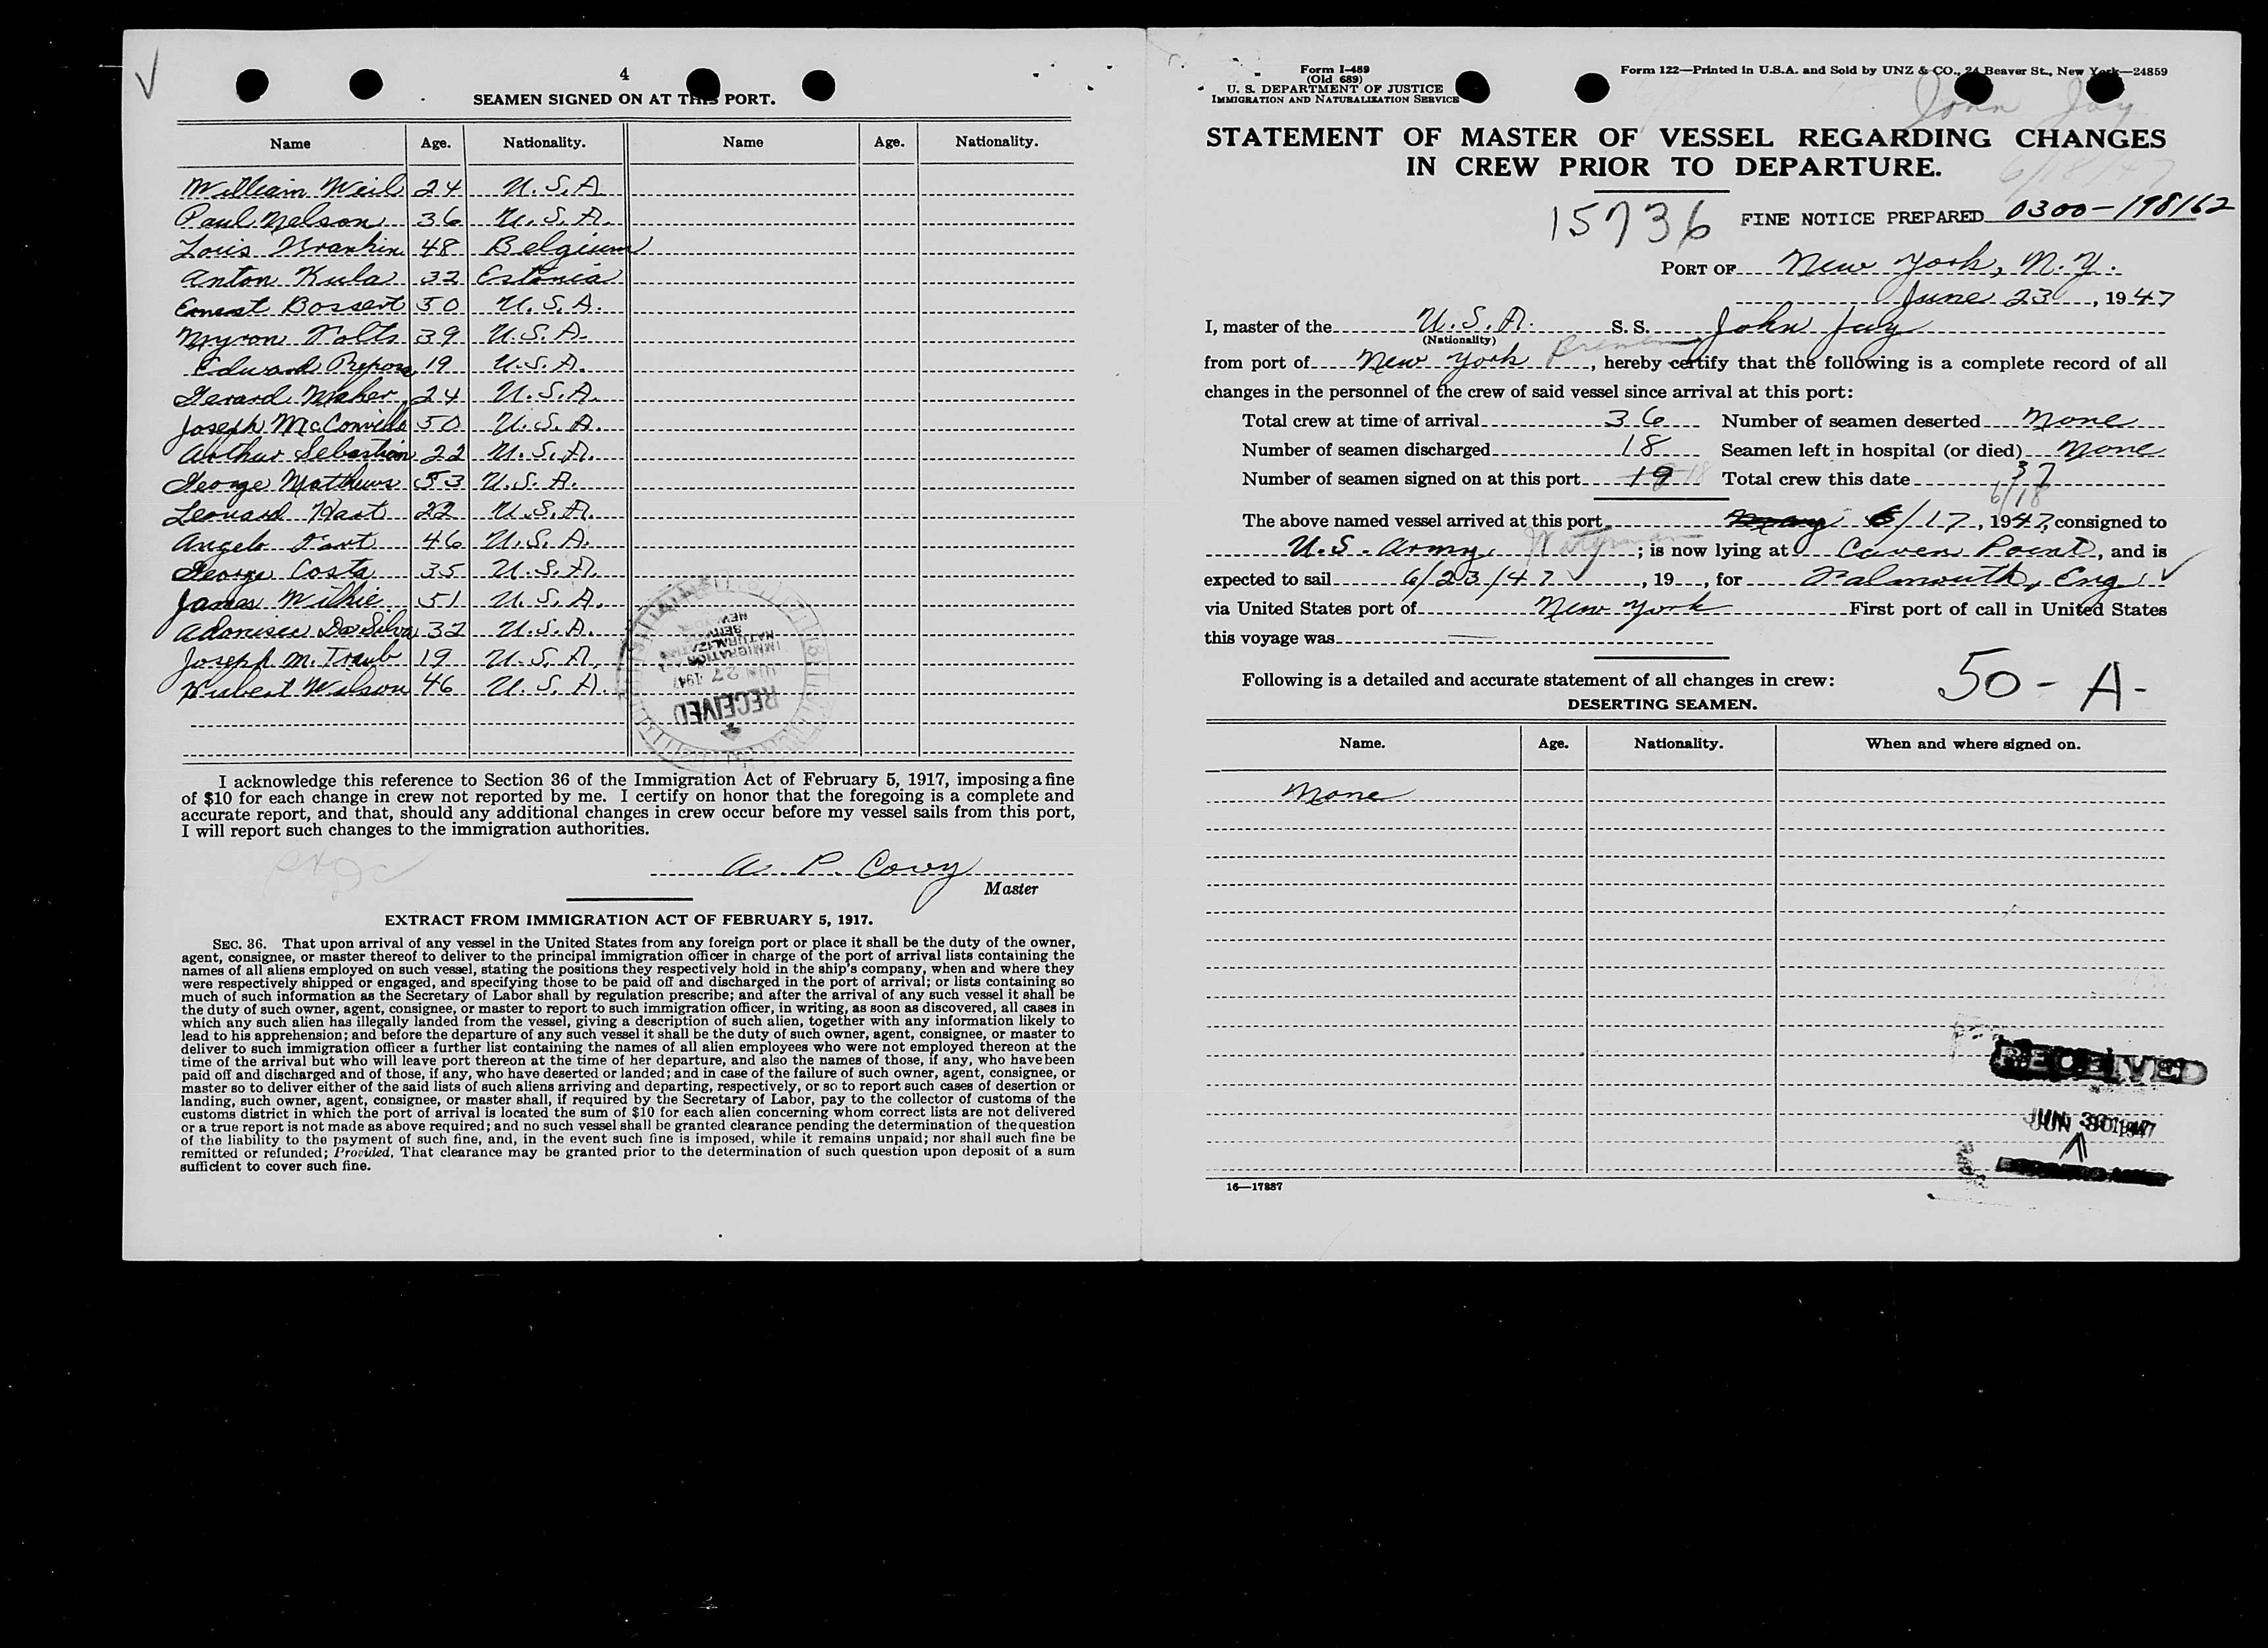 4
SEAMEN SIGNED ON AT THIS PORT.
Name Age. Nationality. Name Age. Nationality.
William Weil 24 U.S.A.
Paul Nelson 36 U.S.A.
Louis 48 Belgium
Anton Kula 32 Estonia
Ernest Bossert 50 U.S.A.
Myron 39 U.S.A.
Edward 19 U.S.A.
Gerard Maher 24 U.S.A.
Joseph McConville 50 U.S.A.
Arthur Sebastian 22 U.S.A.
George Matthews 53 U.S.A.
Leonard Hart 22 U.S.A.
Angelo 46 U.S.A.
George Costa 35 U.S.A.
James Wilkie 51 U.S.A.
Da Silva 32 U.S.A.
Joseph M. Traub 19 U.S.A.
Wilson 46 U.S.A.
RECEIVED
JUN 27 1947
IMMIGRATION AND
NATURALIZATION
SERVICE
NEW YORK
I acknowledge this reference to Section 36 of the Immigration Act of February 5, 1917, imposing a fine
of $10 for each change in crew not reported by me. I certify on honor that the foregoing is a complete and
accurate report, and that, should any additional changes in crew occur before my vessel sails from this port,
I will report such changes to the immigration authorities.
A. P. Covy
Master
EXTRACT FROM IMMIGRATION ACT OF FEBRUARY 5, 1917.
SEC. 36. That upon arrival of any vessel in the United States from any foreign port or place it shall be the duty of the owner,
agent, consignee, or master thereof to deliver to the principal immigration officer in charge of the port of arrival lists containing the
names of all aliens employed on such vessel, stating the positions they respectively hold in the ship's company, when and where they
were respectively shipped or engaged, and specifying those to be paid off and discharged in the port of arrival; or lists containing so
much of such information as the Secretary of Labor shall by regulation prescribe; and after the arrival of any such vessel it shall be
the duty of such owner, agent, consignee, or master to report to such immigration officer, in writing, as soon as discovered, all cases in
which any such alien has illegally landed from the vessel, giving a description of such alien, together with any information likely to
lead to his apprehension; and before the departure of any such vessel it shall be the duty of such owner, agent, consignee, or master to
deliver to such immigration officer a further list containing the names of all alien employees who were not employed thereon at the
time of the arrival but who will leave port thereon at the time of her departure, and also the names of those, if any, who have been
paid off and discharged and of those, if any, who have deserted or landed; and in case of the failure of such owner, agent, consignee, or
master so to deliver either of the said lists of such aliens arriving and departing, respectively, or so to report such cases of desertion or
landing, such owner, agent, consignee, or master shall, if required by the Secretary of Labor, pay to the collector of customs of the
customs district in which the port of arrival is located the sum of $10 for each alien concerning whom correct lists are not delivered
or a true report is not made as above required; and no such vessel shall be granted clearance pending the determination of the question
of the liability to the payment of such fine, and, in the event such fine is imposed, while it remains unpaid; nor shall such fine be
remitted or refunded; Provided, That clearance may be granted prior to the determination of such question upon deposit of a sum
sufficient to cover such fine.
Form I-489
(Old 689)
U. S. DEPARTMENT OF JUSTICE
IMMIGRATION AND NATURALIZATION SERVICE
Form 122—Printed in U.S.A. and Sold by UNZ & CO., 24 Beaver St., New York—24859
John Jay
STATEMENT OF MASTER OF VESSEL REGARDING CHANGES
IN CREW PRIOR TO DEPARTURE.
6/18/47
15736 FINE NOTICE PREPARED 0300-198162
PORT OF New York, N.Y.
June 23, 1947
I, master of the U.S.A. S. S. John Jay
(Nationality)
from port of New York Bremen, hereby certify that the following is a complete record of all
changes in the personnel of the crew of said vessel since arrival at this port:
Total crew at time of arrival 36 Number of seamen deserted None
Number of seamen discharged 18 Seamen left in hospital (or died) None
Number of seamen signed on at this port 19 18 Total crew this date 37
6/18
The above named vessel arrived at this port 6/17, 1947, consigned to
U.S. Army, Waterman; is now lying at Caven Point, and is
expected to sail 6/23/47, 19 , for Falmouth, Eng.
via United States port of New York First port of call in United States
this voyage was —
50-A-
Following is a detailed and accurate statement of all changes in crew:
DESERTING SEAMEN.
Name. Age. Nationality. When and where signed on.
None
RECEIVED
JUN 30 1947
16—17887